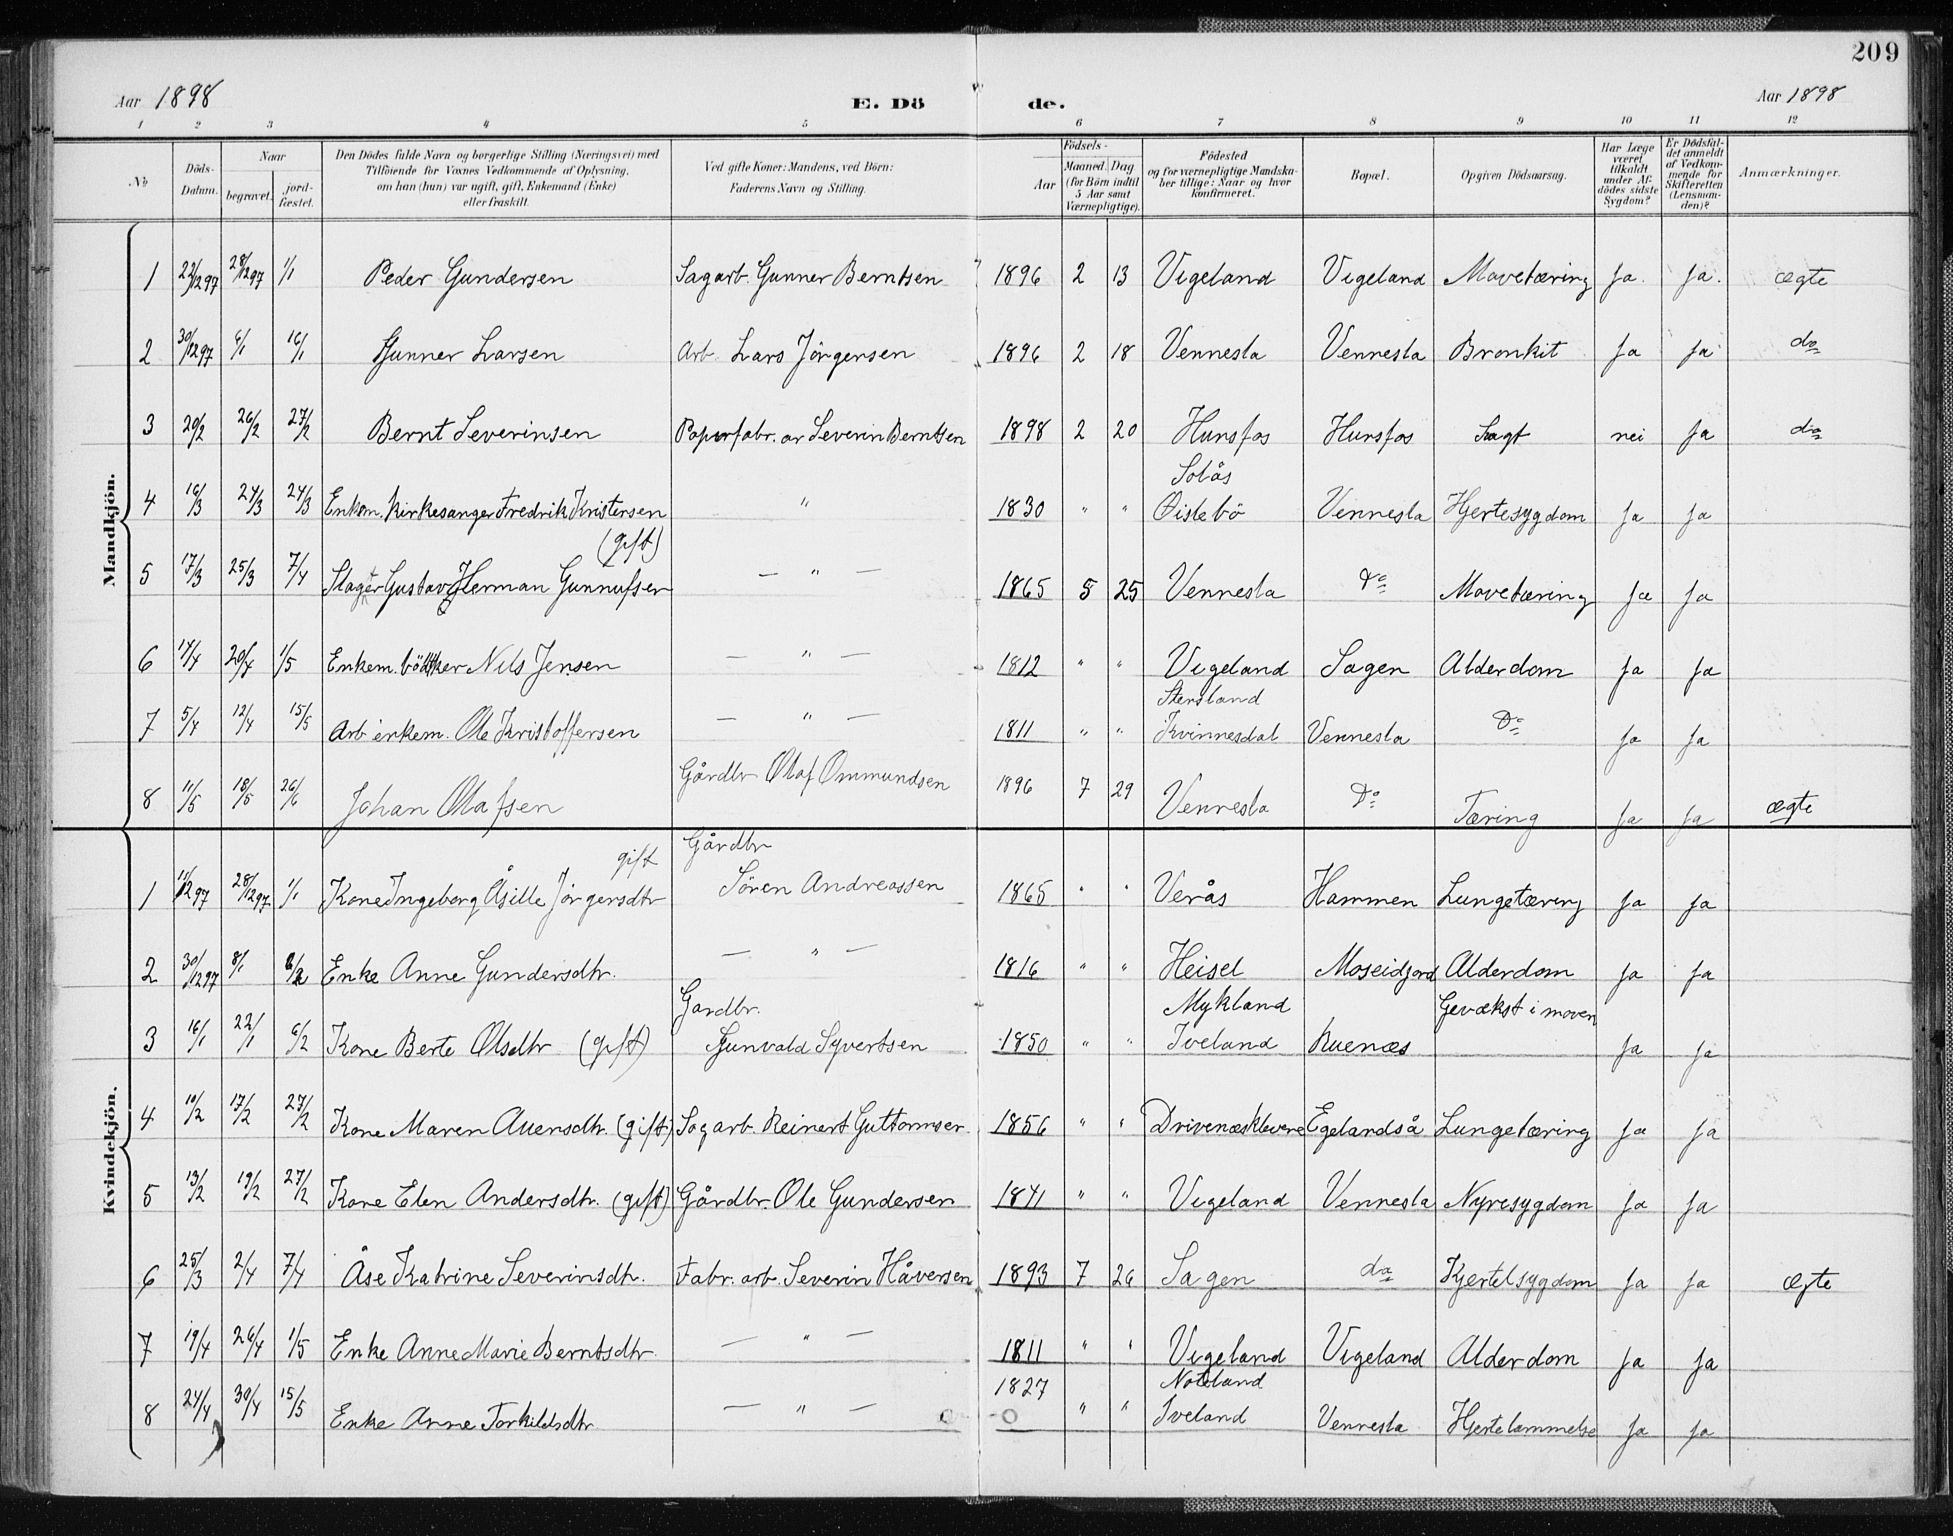 209
Aar 1898 E. Dö de. Aar 1898
1 2 3 4 5 6 7 8 9 10 11 12
No Döds-Datum. Naar begravet. jord-fæstet. Den Dödes fulde Navn og borgerlige Stilling (Næringsvei) med Tilföiende for Voxnes Vedkommende af Oplysning, om han (hun) var ugift, gift, Enkemand (Enke) eller fraskilt. Ved gifte Koner: Mandens, ved Börn: Faderens Navn og Stilling. Födsels- Aar Maaned. Dag (for Börn indtil 5 Aar samt Værnepligtige). Födested og for værnepligtige Mandskaber tillige: Naar og hvor konfirmeret. Bopæl. Opgiven Dödsaarsag. Har Læge været tilkaldt under Afdödes sidste Sygdom? Er Dödsfaldet anmeldt af Vedkommende for Skifteretten (Lensmanden)? Anmærkninger.
Mandkjön.
1 22/12 97 28/12 97 1/1 Peder Gundersen Sagarb. Gunner Berntsen 1896 2 13 Vigeland Vigeland Mavetæring Ja. Ja. ægte
2 30/12 97 6/1 16/1 Gunner Larsen Arb. Lars Jörgensen 1896 2 18 Vennesla Vennesla Bronkit Ja Ja do
3 20/2 26/2 27/2 Bernt Severinsen Papirfabr. ar Severin Berntsen 1898 2 20 Hunsfos Hunsfos Svagt nei Ja do
Solås
4 16/3 24/3 24/3 Enkem. Kirkesanger Fredrik Kristensen " 1830 " " Øislebö Vennesla Hjertesygdom Ja Ja
(gift)
5 17/3 25/3 7/4 Slagter Gustav Herman Gunnufsen — " — 1865 5 25 Vennesla Do Mavetæring Ja Ja
6 14/4 20/4 1/5 Enkem. bödtker Nils Jensen — " — 1812 " " Vigeland Sagen Alderdom Ja Ja
7 5/4 12/4 15/5 Arb enkem. Ole Kristoffersen — " — 1811 " " Kvinnesdal Vennesla Do Ja Ja
8 11/5 18/5 26/6 Johan Olafsen Gårdbr Olaf Ommundsen 1896 7 29 Vennesla Do Tæring Ja Ja ægte
Kvindekjön.
gift Gårdbr
1 11/12 97 28/12 97 1/1 Kone Ingeborg Åsille Jörgensdtr Sören Andreassen 1865 " " Verås Hammen Lungetæring Ja Ja
2 30/12 97 8/1 Enke Anne Gundersdtr. — " — 1816 " " Heisel Moseidjord Alderdom Ja Ja
Gardbr. Mykland Gevækst i maven
3 16/1 22/1 6/2 Kone Berte Olsdtr (gift) Gunvald Syvertsen 1850 " " Iveland Ruenæs Ja Ja
4 10/2 17/2 27/2 Kone Maren Auensdtr. (gift) Sagarb. Reinert Guttormsen 1856 " " Drivenæsklevene Egelandså Lungetæring Ja Ja
5 13/2 19/2 27/2 Kone Elen Andersdtr. (gift) Gårdbr. Ole Gundersen 1841 " " Vigeland Vennesla Nyresygdom Ja Ja
6 25/3 2/4 7/4 Åse Katrine Severinsdtr. Fabr. arb. Severin Håversen 1893 7 26 Sagen do Kjertelsygdom Ja Ja Ægte
7 19/4 26/4 1/5 Enke Anne Marie Berntsdtr — " — 1811 " " Vigeland Vigeland Alderdom Ja Ja
1827 Noteland
8 24/4 30/4 15/5 Enke Anne Torkildsdtr — " — " " Iveland Vennesla Hjertelammelse Ja Ja